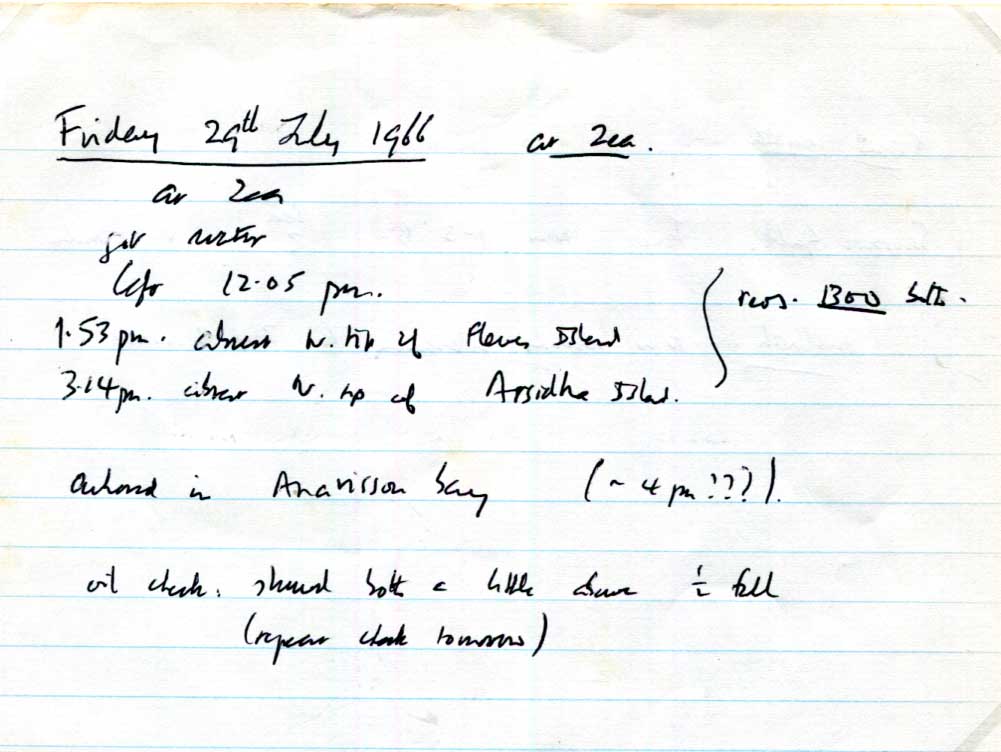 Friday 29th July 1966 at Zea.
at Zea
got water
left 12.05 pm.
1.53 pm. abeam N. tip of Fleves Island
3.14 pm. abeam N. tip of Arsidha Island.
revs. 1300 both.
anchored in Anavisson bay (~ 4 pm ???).
oil check. showed both a little above ½ full
(repeat check tomorrow)